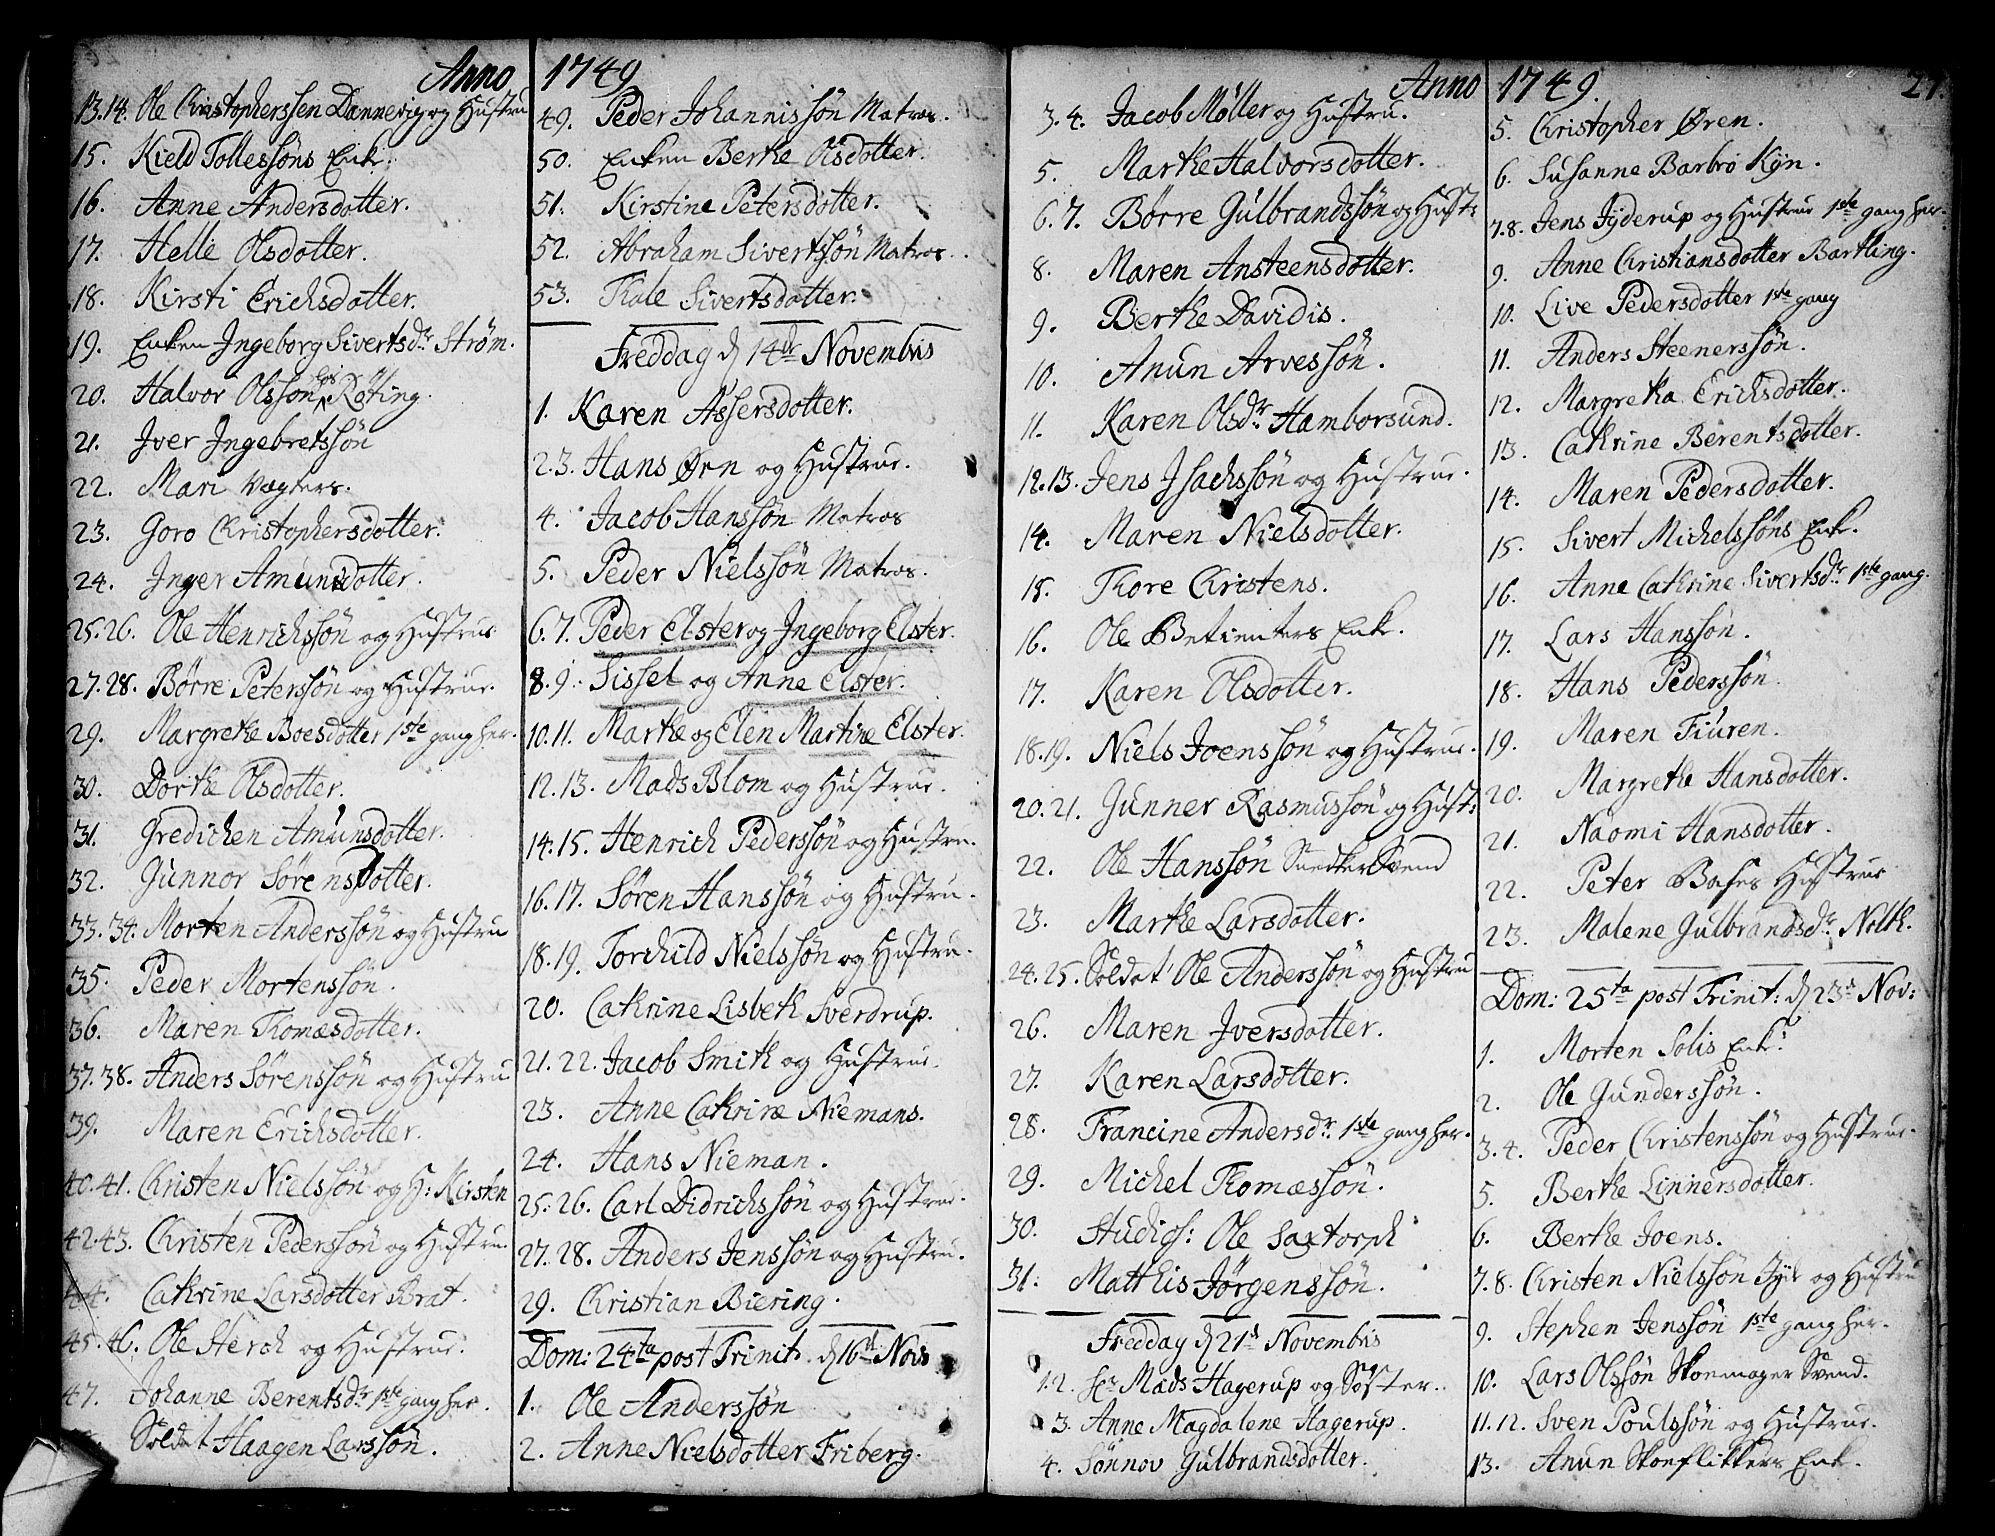 Anno 1749
13.14. Ole Christopherssen Dannevig og Hustru
15. Kield Tollessøns Enk:
16. Anne Andersdotter.
17. Helle Olsdotter.
18. Kirsti Erichsdotter.
19. Enken Ingeborg Sivertsdr Strøm.
20. Halvor Olssøn Røting.
21. Iver Ingebretssøn
22. Mari Vægters.
23. Goro Christophersdotter.
24. Inger Amunsdotter.
25.26. Ole Henrichssøn og Hustrue
27.28. Børre Peterssøn og Hustrue.
29. Margrethe Boesdotter 1ste gang her.
30. Dorthe Olsdotter.
31. Gredichen Amunsdotter.
32. Gunnor Sørensdotter.
33.34. Morten Anderssøn og Hustru
35. Peder Mortenssøn.
36. Maren Thomæsdotter.
37.38. Anders Sørenssøn og Hustru
39. Maren Erichsdotter.
40.41. Christen Nielssøn og H: Kirsten
42.43. Christen Pederssøn og Hustru.
44. Cathrine Larsdotter Brat.
45.46. Ole Herch og Hustrue.
47. Johanne Berentsdr 1ste gang her.
Soldat Haagen Larssøn.
49. Peder Johannissøn Matros.
50. Enken Berthe Olsdotter.
51. Kirstine Petersdotter.
52. Abraham Sivertssøn Matros.
53. Thale Sivertsdotter.
Freddag d 14de Novembris
1. Karen Assersdotter.
2.3. Hans Ørn og Hustrue.
4. Jacob Hanssøn Matros
5. Peder Nielssøn Matros.
6.7. Peder Elster og Ingeborg Elster.
8.9. Sissel og Anne Elster.
10.11. Marthe og Elen Martine Elster.
12.13. Mads Blom og Hustrue.
14.15. Henrich Pederssøn og Hustru.
16.17. Søren Hanssøn og Hustru.
18.19. Torchild Nielssøn og Hustru.
20. Cathrine Lisbeth Sverdrup.
21.22. Jacob Smith og Hustrue.
23. Anne Cathrine Niemans.
24. Hans Nieman.
25.26. Carl Didrichssøn og Hustrue.
27.28. Anders Jenssøn og Hustru.
29. Christian Biering.
Dom: 24ta post Trinit. d 16d Nov:
1. Ole Anderssøn
2. Anne Nielsdotter Friberg.
Anno 1749. 27.
3.4. Jacob Møller og Hustru.
5. Marthe Halvorsdotter.
6.7. Børre Gulbrandssøn og Hust:
8. Maren Ansteensdotter.
9. Berthe Davidis.
10. Anun Arvessøn.
11. Karen Olsdr Hamborsund.
12.13. Jens Isachssøn og Hustrue.
14. Maren Nielsdotter.
15. Thore Christens.
16. Ole Betienters Enk.
17. Karen Olsdotter.
18.19. Niels Joenssøn og Hustrue.
20.21. Gunner Rasmussøn og Hust:
22. Ole Hanssøn Snedker Svend
23. Marthe Larsdotter.
24.25. Soldat Ole Anderssøn og Hustru
26. Maren Iversdotter.
27. Karen Larsdotter.
28. Francine Andersdr. 1ste gang her.
29. Michel Thomæssøn.
30. Studios: Ole Saxtorph
31. Matthis Jørgenssøn.
Fredday d 21d Novembris
1.2. Sr Mads Hagerup og Søster.
3. Anne Magdalene Hagerup.
4. Sønnov Gulbrandsdotter.
5. Christopher Øren.
6. Susanne Barbro Kyn.
7.8. Jens Jyderup og Hustrue 1ste gang her.
9. Anne Christiansdotter Bartling.
10. Live Pedersdotter 1ste gang
11. Anders Steenerssøn.
12. Margretha Erichsdotter.
13. Cathrine Berentsdotter.
14. Maren Pedersdotter.
15. Sivert Michelssøns Enk.
16. Anne Cathrine Sivertsdr 1ste gang.
17. Lars Hanssøn.
18. Hans Pederssøn.
19. Maren Fiuren.
20. Margrethe Hansdotter.
21. Naomi Hansdotter.
22. Peter Boses Hustrue
23. Malene Gulbrandsdr.
Dom: 25ta post Trinit: d 23d Nov:
1. Morten Solis Enk:
2. Ole Gunderssøn.
3.4. Peder Christenssøn og Hustrue.
5. Berthe Linnersdotter.
6. Berthe Joens.
7.8. Christen Nielssøn Jyde og Hustru
9. Stephen Jenssøn 1ste gang her.
10. Lars Olssøn Skoemager Svend.
11.12. Sven Poulssøn og Hustrue.
13. Anun Skoeflikkers Enk.